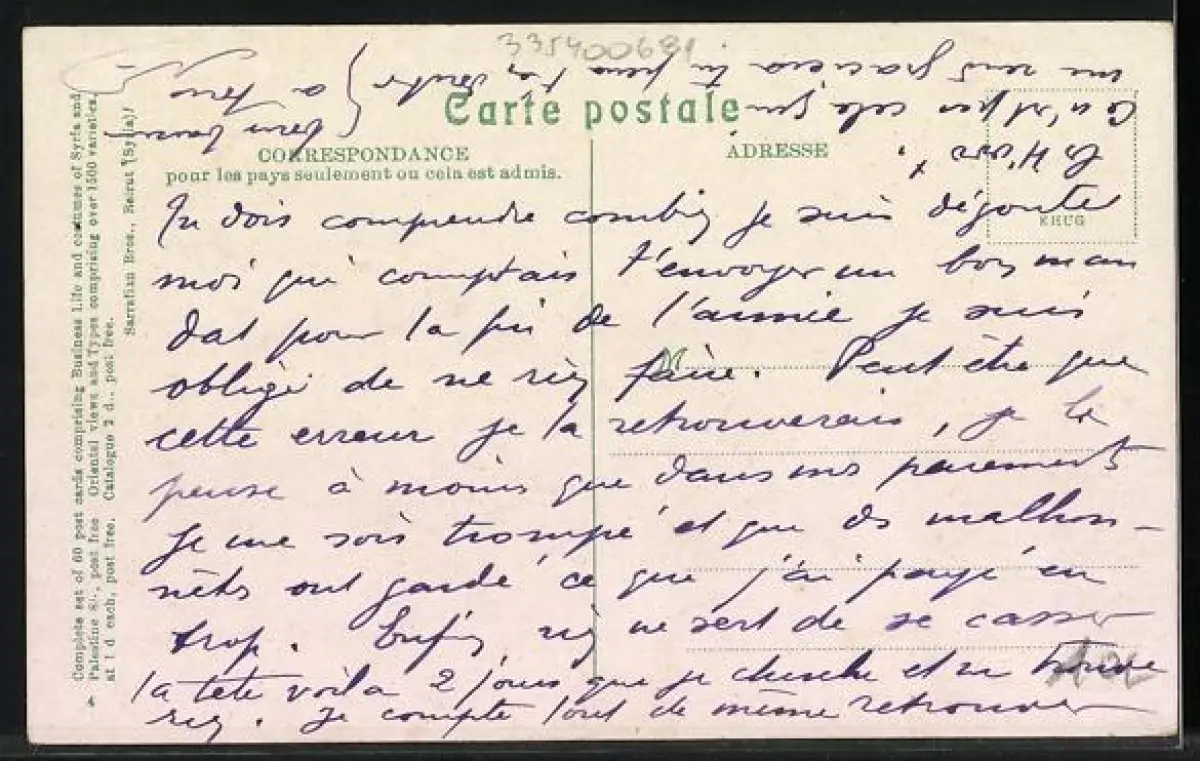 335400681
Carte postale
CORRESPONDANCE
pour les pays seulement ou cela est admis.
ADRESSE
Tu dois comprendre combien je suis dégouté
moi qui comptais t'envoyer un bon man
dat pour la fin de l'année je suis
obligé de ne rien faire. Peut être que
cette erreur je la retrouverais, je le
pense à moins que dans mes paiements
je me sois trompé et que des malhon-
nêts ont gardé ce que j'ai payé en
trop. Enfin rien ne sert de se casser
la tête voila 2 jours que je cherche et ne trouve
rien. Je compte tout de même retrouver
Ce n'est pas cela qui
me rend
Complete set of 60 post cards comprising Business Life and costumes of Syria and
Palestine 8/-, post free Oriental views and Types comprising over 1500 varieties.
at 1 d each, post free. Catalogue 2 d., post free.
Sarrafian Bros., Beirut (Syria)
4